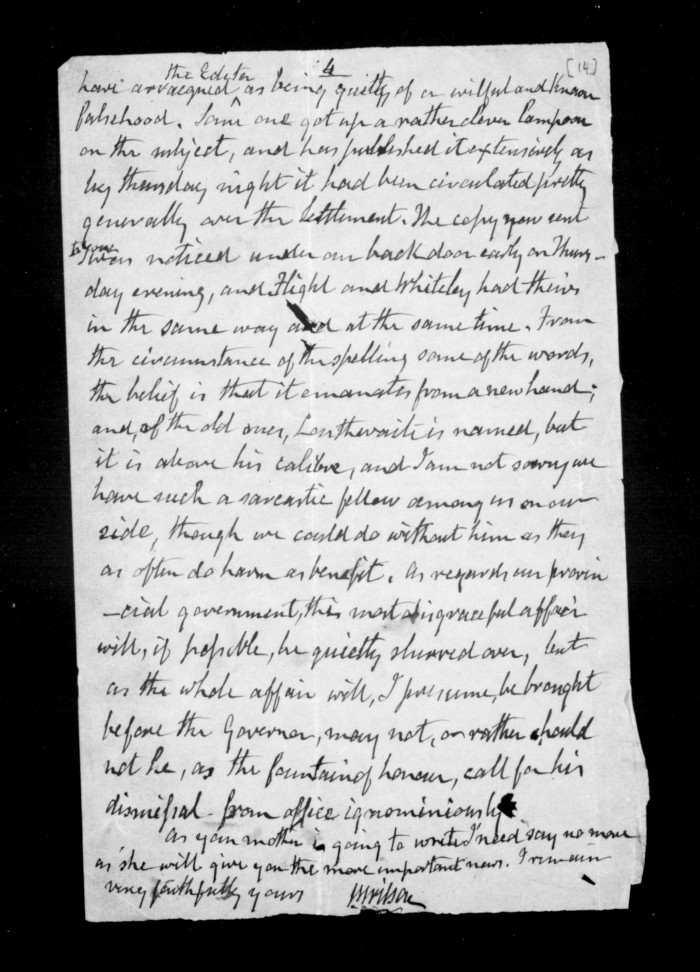 4
[14]
the Editor
have arraegned as being guilty of a wilful and Known
falsehood. Some one got up a rather clever Lampoon
on the subject, and has published it extensively as
by thursday night it had been circulated pretty
generally over the Settlement. The copy now sent
to you
was noticed under our back door early on Thurs-
day evening, and Flight and Whiteley had theirs
in the same way and at the same time. From
the circumstance of the spelling some of the words,
the belief is that it emanates from a new hand;
and, of the old ones, Louthwaite is named, but
it is above his calibre, and I am not sorry we
have such a sarcastic fellow among us on our
side, though we could do without him as they
as often do harm as benefit. As regards our provin
-cial government, this most disgraceful affair
will, if possible, be quietly slurred over, but
as the whole affair will, I presume, be brought
before the Governor, may not, or rather should
not he, as the fountain of honour, call for his
dismissal from office ignominiously
As your mother is going to write I need say no more
as she will give you the more important news. I remain
very faithfully yours
JWilson